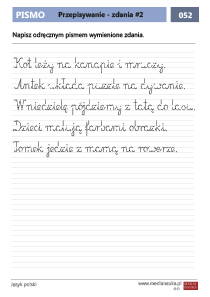 PISMO Przepisywanie - zdania #2 052
Napisz odręcznym pismem wymienione zdania.
Kot leży na kanapie i mruczy.
Antek układa puzzle na dywanie.
W niedzielę pójdziemy z tatą do lasu.
Dzieci malują farbami obrazki.
Tomek jedzie z mamą na rowerze.
Język polski www.medianauka.pl